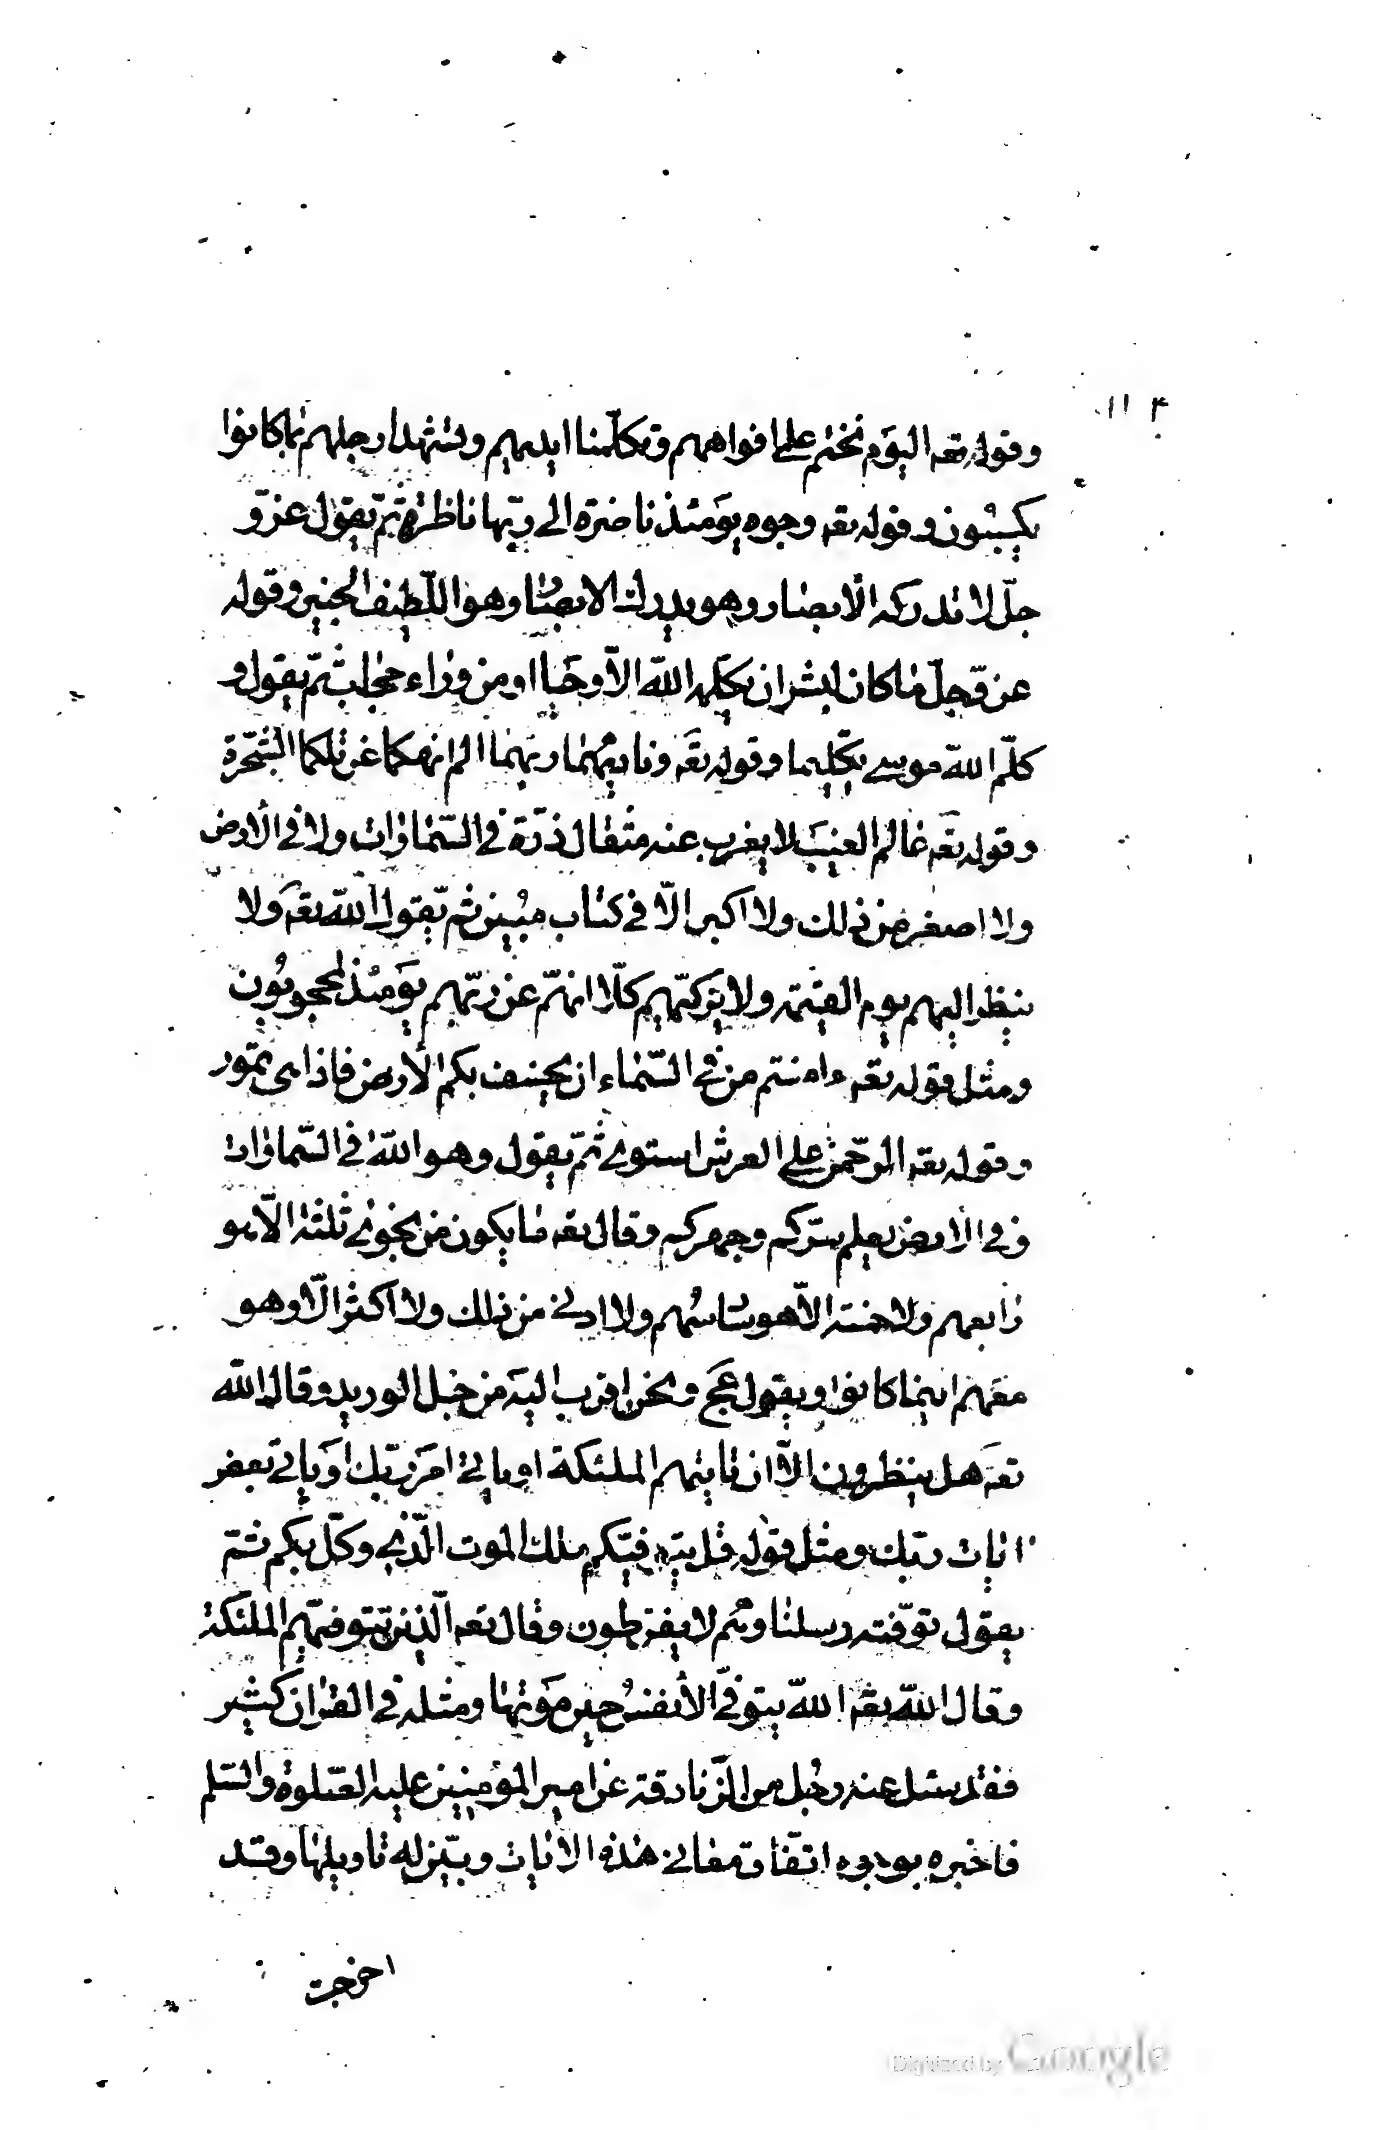 ١١٤
وقوله تعه اليوم نختم على افواههم وتكلمنا ايديهم وتشهد ارجلهم بما كانوا
يكسبون وقوله تعه وجوه يومئذ ناضرة الى ربّها ناظرة ثمّ يقول عزّ و
جلّ لا تدركه الأبصار وهو يدرك الابصار وهو اللّطيف الخبير وقوله
عزّ وجلّ ما كان لبشر ان يكلّمه اللّه الاّ وحيا او من وراء حجاب ثمّ يقول و
كلّم اللّه موسى تكليما وقوله تعه وناديهما ربهما الم انهكما عن تلكما الشّجرة
وقوله تعه عالم الغيب لا يعزب عنه مثقال ذرّة في السّماوات ولا في الأرض
ولا اصغر من ذلك ولا اكبر الاّ في كتاب مبين ثم يقول اللّه تعه ولا
ينظر اليهم يوم القيمة ولا يزكّيهم كلاّ انهّم عن ربّهم يومئذ لمحجوبون
ومثل قوله تعه ءامنتم من في السّماء ان يخسف بكم الأرض فاذا هى تمور
وقوله تعه الرّحمن على العرش استوى ثمّ يقول وهو اللّه في السّماوات
وفي الارض يعلم سرّكم وجهركم وقال تعه ما يكون من نجوى ثلثة الاّ هو
رابعهم ولا خمسة الاّ هو سادسهم ولا ادنى من ذلك ولا اكثر الاّ وهو
معهم اينما كانوا ويقول عج ونحن اقرب اليه من حبل الوريد وقال اللّه
تعه هل ينظرون الاّ ان تاتيهم الملئكة او ياتى امر ربّك او ياتى بعض
ايات ربّك ومثل قوله قل يتوفيّكم ملك الموت الّذى وكّل بكم ثمّ
يقول توّفته رسلنا وهم لا يفرطون وقال تعه الّذين تتوفيّهم الملئكة
وقال اللّه تعه اللّه يتوفّى الأنفس حين موتها ومثله في القران كثير
فقد سئل عنه رجل من الزّنادقة عن امير المؤمنين عليه الصّلوة والسّلم
فاخبره بوجوه اتّفاق معانى هذه الايات وبيّن له تاويلها وقد
اخرجت
Digitized by Google